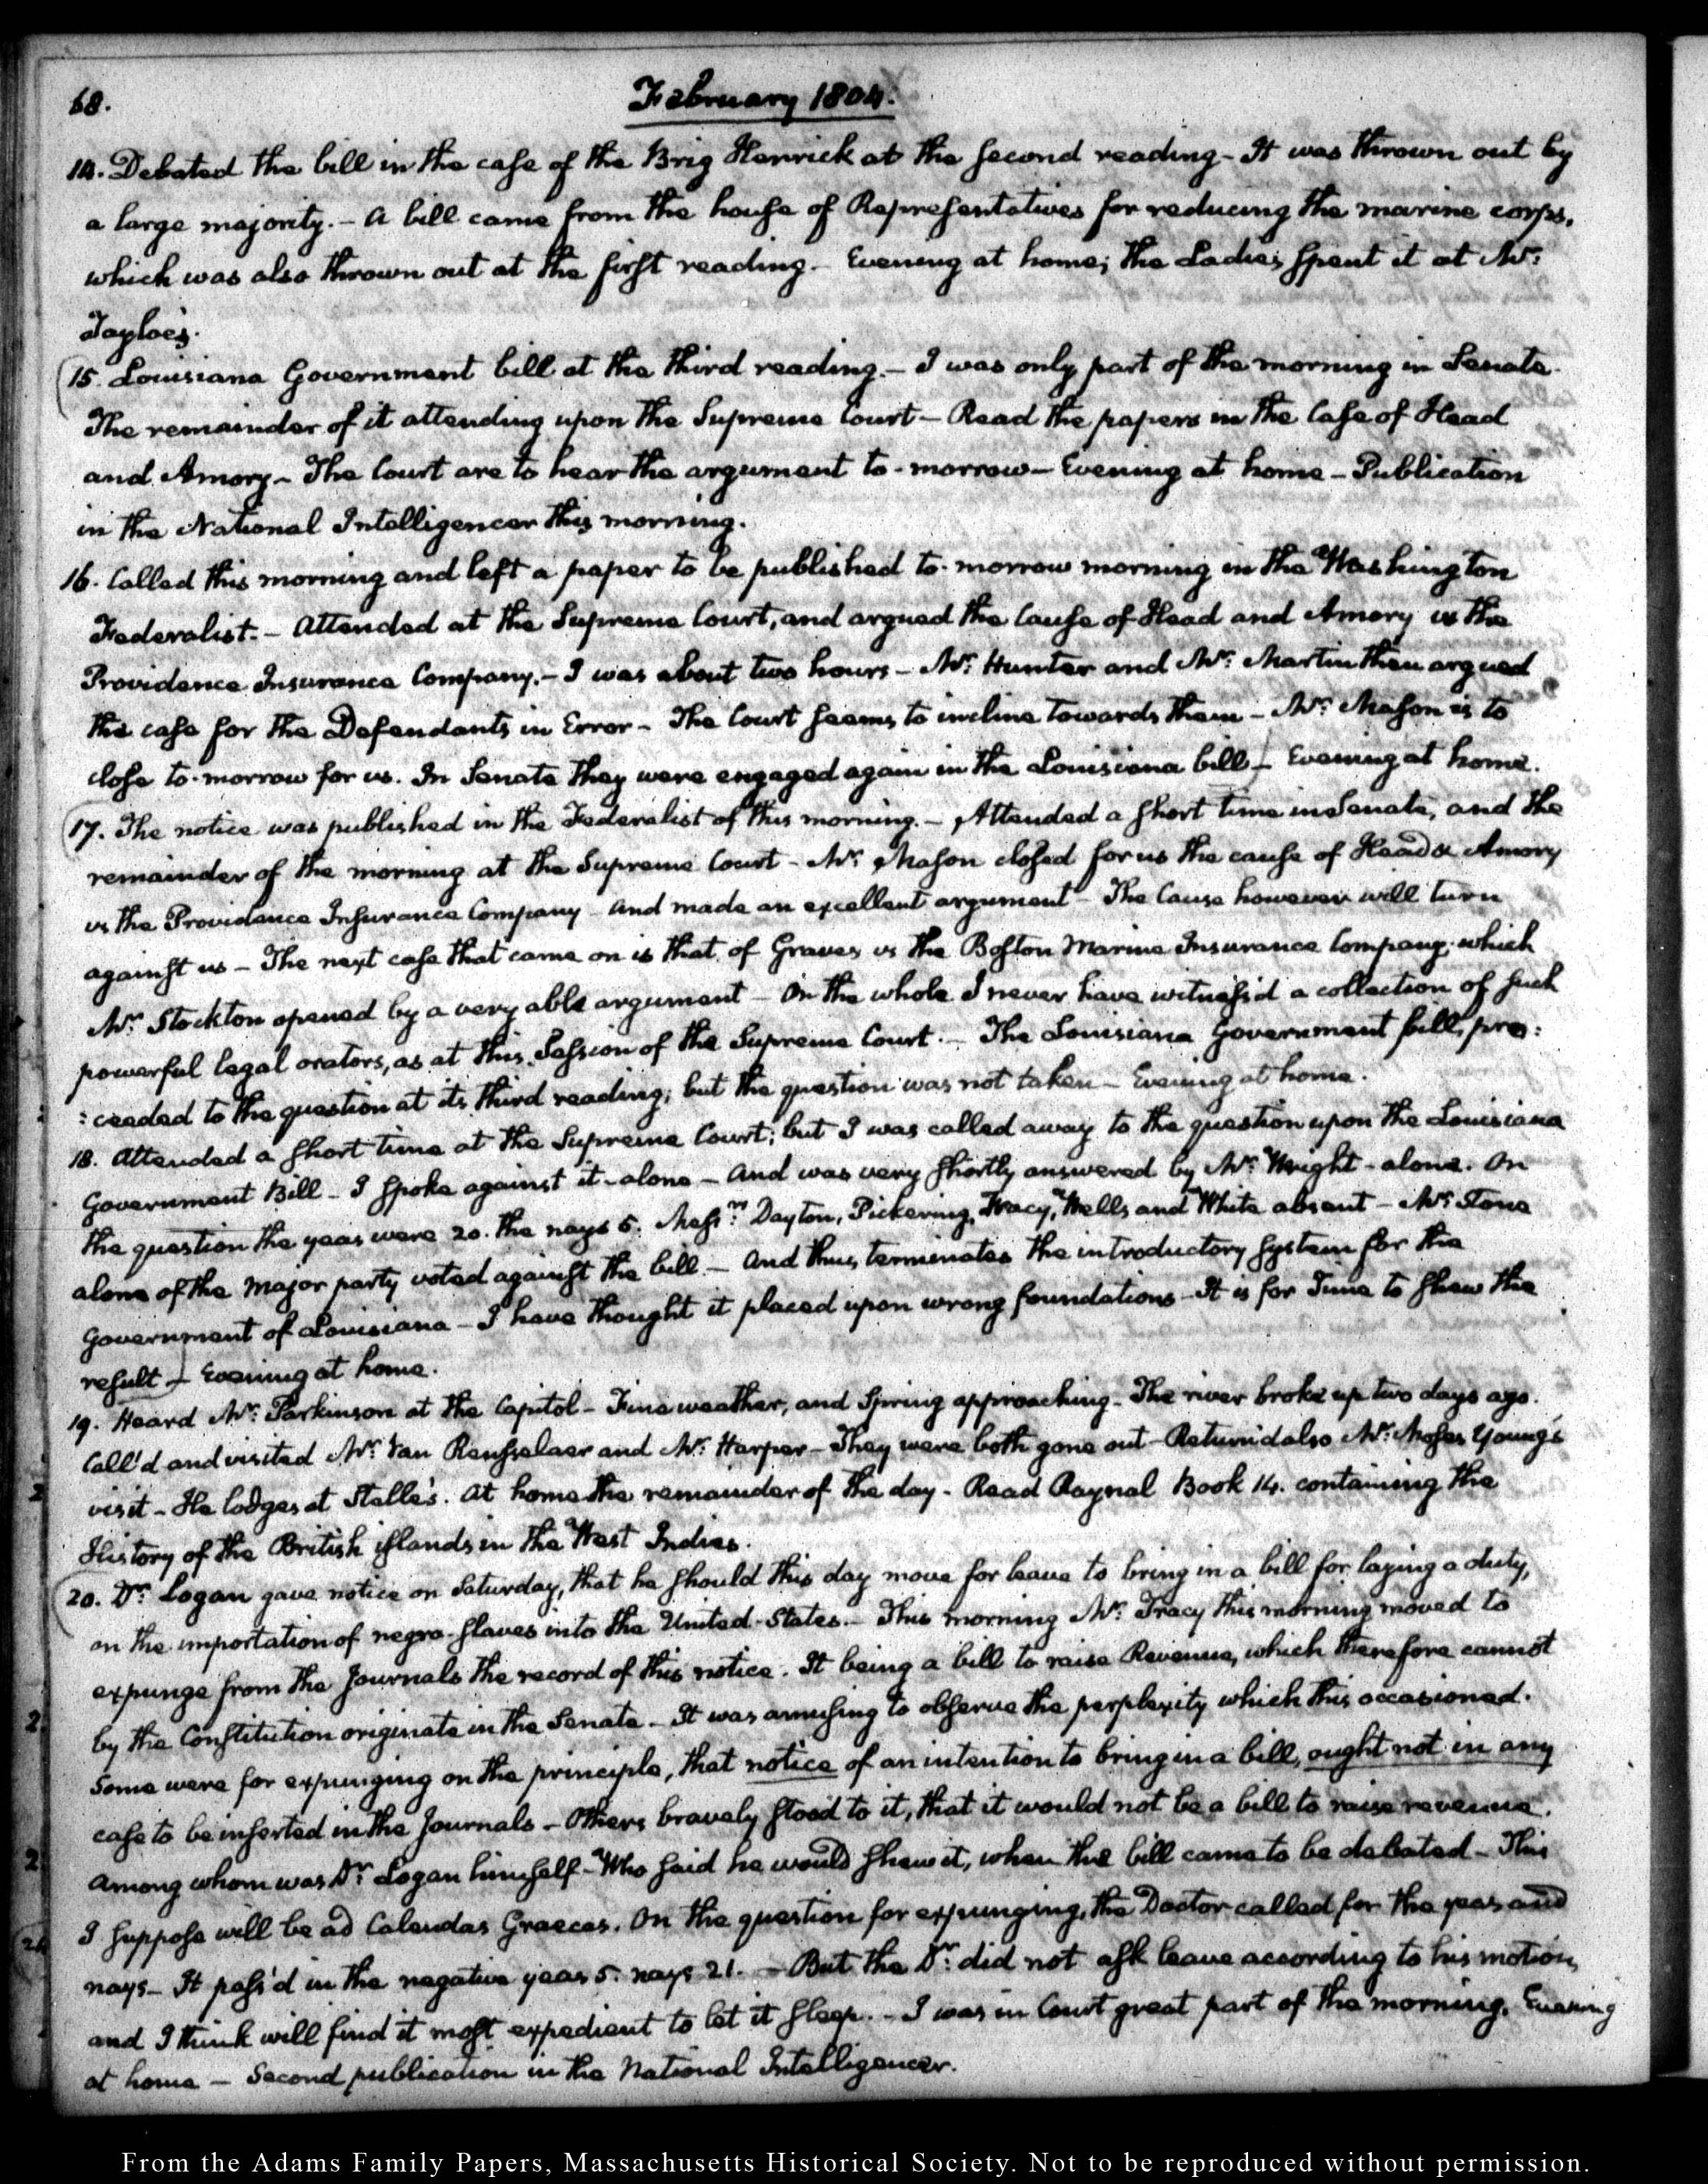 68.
February 1804.
14. Debated the bill in the case of the Brig Herrick at the second reading - It was thrown out by
a large majority. - A bill came from the house of Representatives for reducing the marine corps,
which was also thrown out at the first reading. - Evening at home; the Ladies spent it at Mr:
Tayloe's.
15. Louisiana Government bill at the third reading. - I was only part of the morning in Senate.
The remainder of it attending upon the Supreme Court - Read the papers in the Case of Head
and Amory - The Court are to hear the argument to-morrow - Evening at home - Publication
in the National Intelligencer this morning.
16. Called this morning and left a paper to be published to-morrow morning in the Washington
Federalist. - Attended at the Supreme Court, and argued the Cause of Head and Amory vs the
Providence Insurance Company. - I was about two hours - Mr: Hunter and Mr: Martin then argued
the case for the Defendants in Error - The Court seems to incline towards them - Mr: Mason is to
close to-morrow for us. In Senate they were engaged again in the Louisiana bill - Evening at home.
17. The notice was published in the Federalist of this morning. - Attended a short time in Senate, and the
remainder of the morning at the Supreme Court - Mr: Mason closed for us the cause of Head & Amory
vs the Providence Insurance Company - and made an excellent argument - The Cause however will turn
against us - The next case that came on is that of Graves vs the Boston Marine Insurance Company, which
Mr: Stockton opened by a very able argument - On the whole I never have witness'd a collection of such
powerful legal orators, as at this Session of the Supreme Court. - The Louisiana Government bill, pro:
:ceeded to the question at its third reading; but the question was not taken - Evening at home.
18. Attended a short time at the Supreme Court; but I was called away to the question upon the Louisiana
Government Bill - I spoke against it - alone - And was very shortly answered by Mr: Wright - alone. On
the question the yeas were 20. the nays 5. Messrs: Dayton, Pickering, Tracy, Wells and White absent - Mr: Stone
alone of the major party voted against the bill. - And thus, terminates the introductory system for the
Government of Louisiana - I have thought it placed upon wrong foundations - It is for Time to shew the
result - Evening at home.
19. Heard Mr: Parkinson at the Capitol - Fine weather, and Spring approaching - The river broke up two days ago.
Call'd and visited Mr: Van Rensselaer and Mr: Harper - They were both gone out - Return'd also Mr: Moses Young's
visit - He lodges at Stelle's. At home the remainder of the day - Read Raynal Book 14. containing the
History of the British islands in the West Indies.
20. Dr: Logan gave notice on Saturday, that he should this day move for leave to bring in a bill for laying a duty,
on the importation of negro-slaves into the United-States. - This morning Mr: Tracy this morning moved to
expunge from the Journals the record of this notice. It being a bill to raise Revenue, which therefore cannot
by the Constitution originate in the Senate - It was amusing to observe the perplexity which this occasioned.
Some were for expunging on the principle, that notice of an intention to bring in a bill, ought not in any
case to be inserted in the Journals - Others bravely stood to it, that it would not be a bill to raise revenue.
Among whom was Dr: Logan himself - Who said he would shew it, when the bill came to be debated - This
I suppose will be ad Calendas Graecas. On the question for expunging, the Doctor called for the yeas and
nays - It pass'd in the negative yeas 5. nays 21. - But the Dr: did not ask leave according to his motion,
and I think will find it most expedient to let it sleep. - I was in Court great part of the morning. Evening
at home - Second publication in the National Intelligencer.
From the Adams Family Papers, Massachusetts Historical Society. Not to be reproduced without permission.